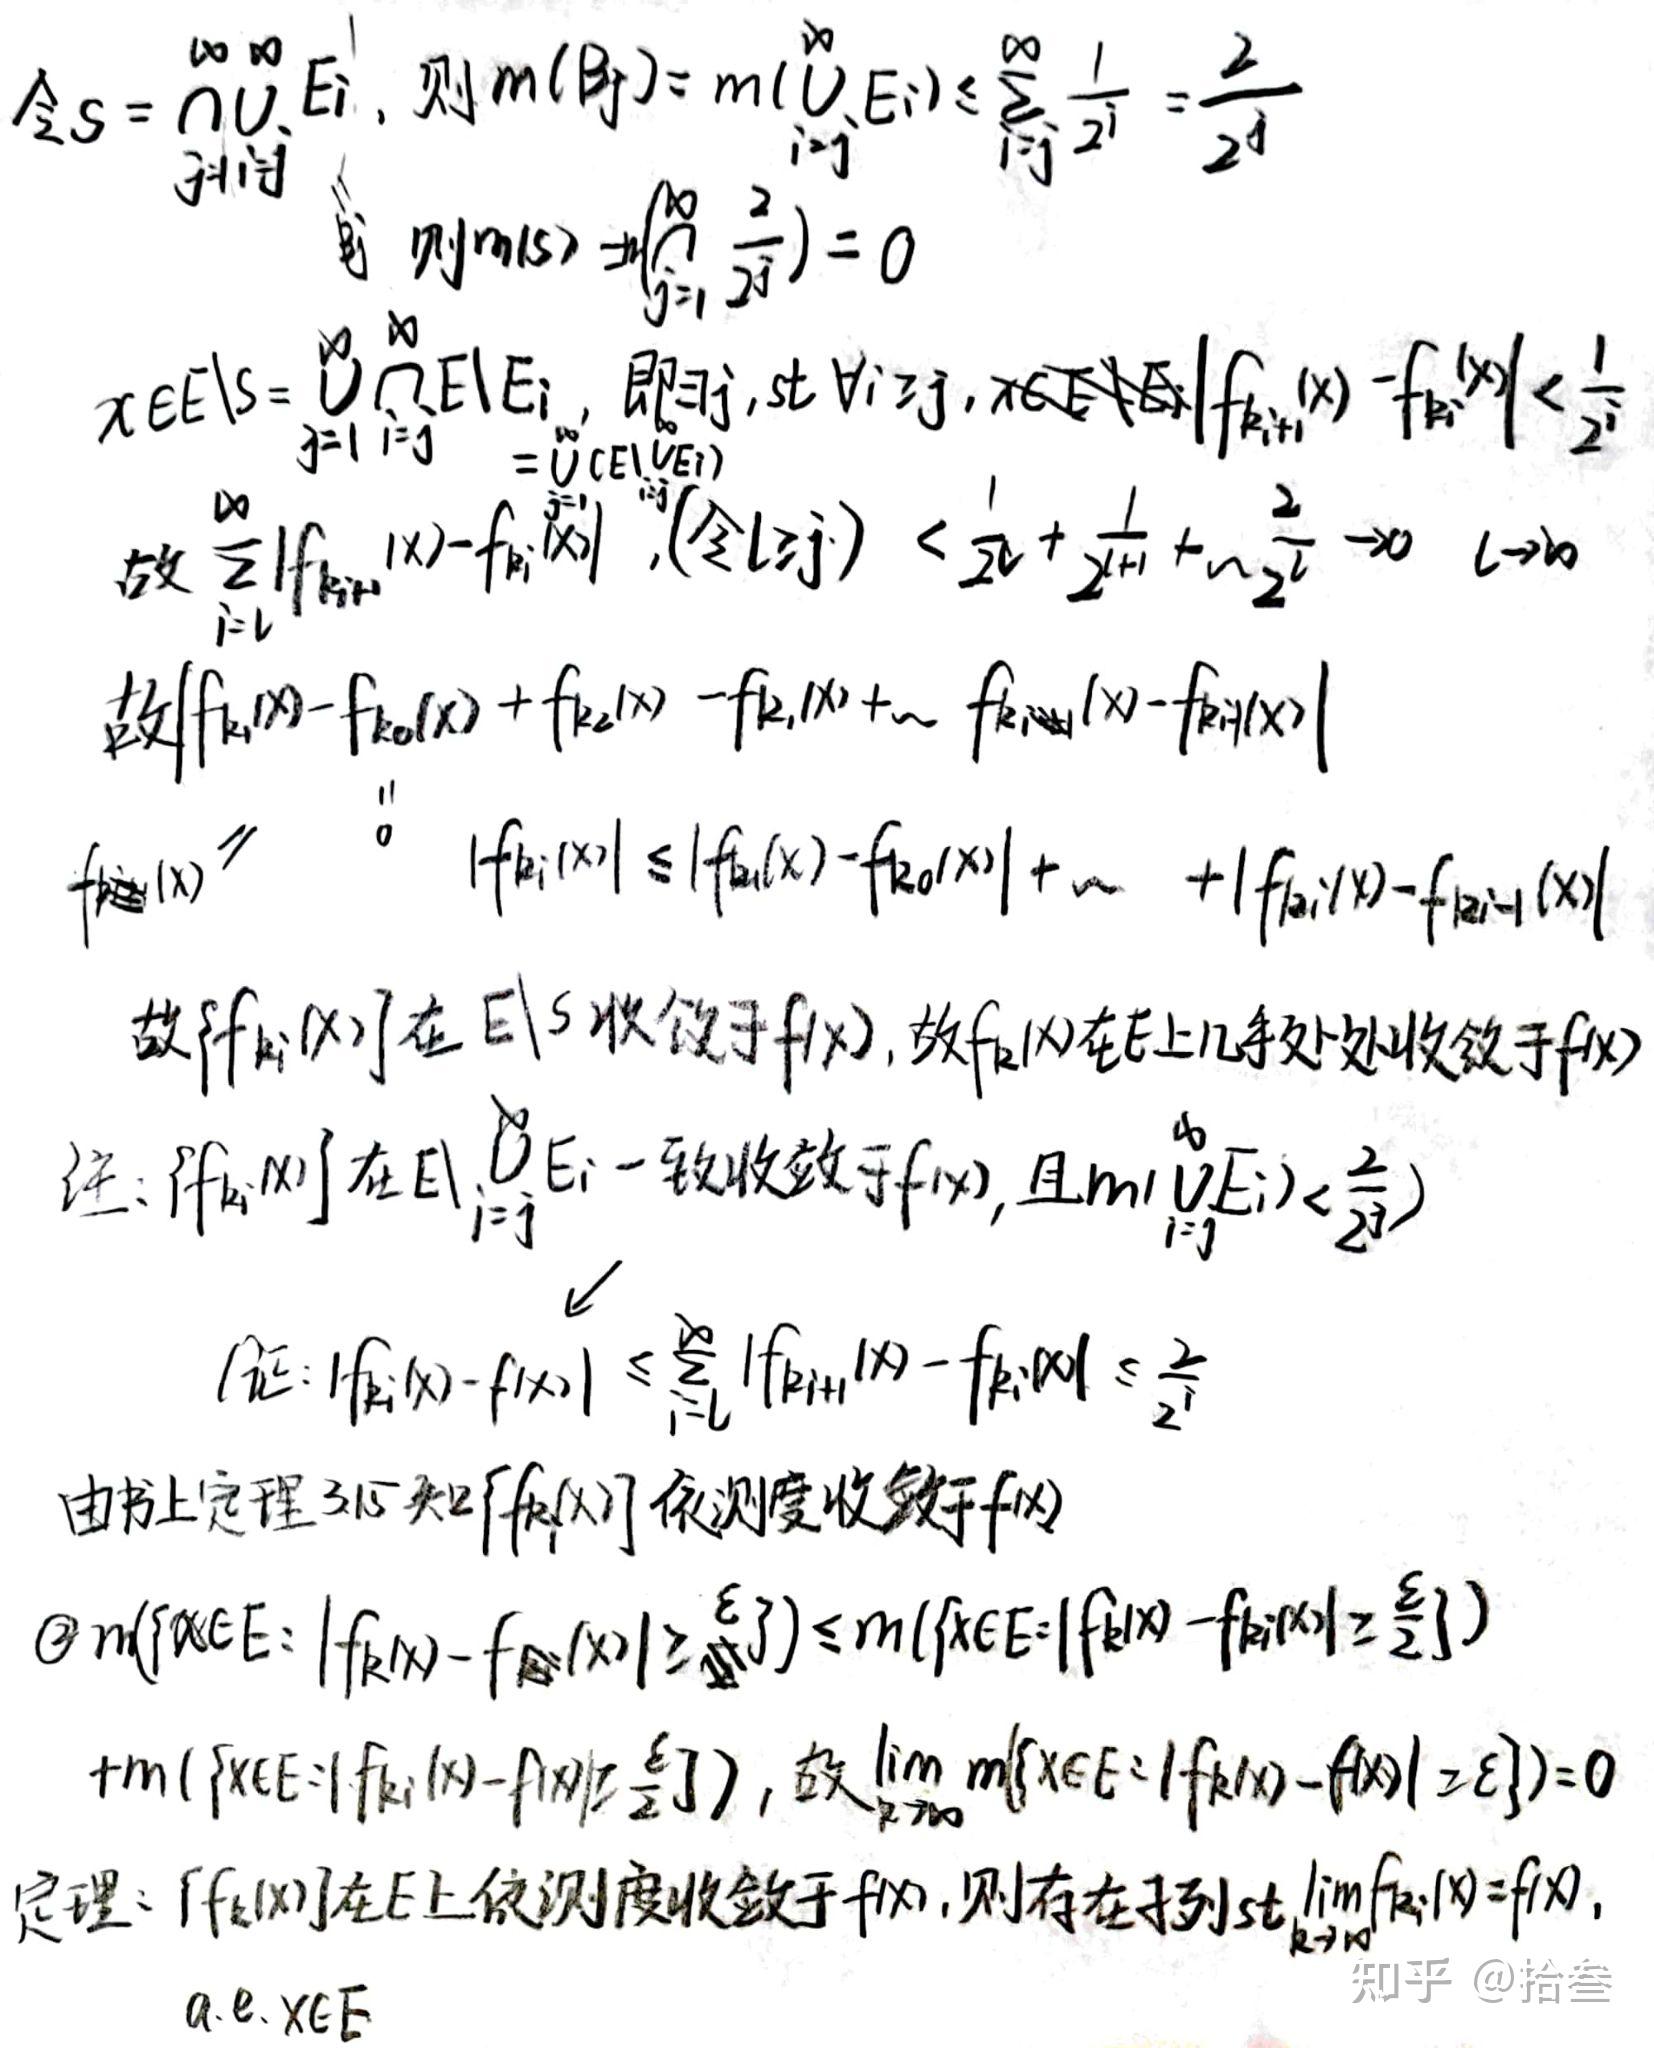 令S = ∩_{j=1}^∞ ∪_{i=j}^∞ Ei, 则 m(Bj) = m(∪_{i=j}^∞ Ei) ≤ Σ_{i=j}^∞ 1/2^i = 2/2^j
Bj 则m(S) (∩_{j=1}^∞ 2/2^j) = 0
x∈E\S = ∪_{j=1}^∞ ∩_{i=j}^∞ E\Ei, 即∃j, st ∀i≥j, |f_{k_{i+1}}(x) - f_{k_i}(x)| < 1/2^i
= ∪_{j=1}^∞ (E\∪_{i=j}^∞ Ei)
故 Σ_{i=l}^∞ |f_{k_{i+1}}(x) - f_{k_i}(x)|, (令l≥j) < 1/2^l + 1/2^{l+1} + ~ 2/2^l →0 l→∞
故|f_{k_1}(x) - f_{k_0}(x) + f_{k_2}(x) - f_{k_1}(x) + ~ f_{k_i}(x) - f_{k_{i-1}}(x)|
f(x) = 0 |f_{k_i}(x)| ≤ |f_{k_1}(x) - f_{k_0}(x)| + ~ + |f_{k_i}(x) - f_{k_{i-1}}(x)|
故{f_{k_i}(x)}在 E\S 收敛于f(x), 故f_k(x)在E上几乎处处收敛于f(x)
注: {f_{k_i}(x)}在E\∪_{i=j}^∞ Ei 一致收敛于f(x), 且m(∪_{i=j}^∞ Ei) < 2/2^j)
(证: |f_{k_i}(x) - f(x)| ≤ Σ_{i=l}^∞ |f_{k_{i+1}}(x) - f_{k_i}(x)| ≤ 2/2^i
由书上定理3.15知{f_{k_i}(x)}依测度收敛于f(x)
② m({x∈E: |f_k(x) - f(x)| ≥ ε}) ≤ m({x∈E: |f_k(x) - f_{k_i}(x)| ≥ ε/2})
+m({x∈E: |f_{k_i}(x) - f(x)| ≥ ε/2}), 故 lim_{k→∞} m({x∈E: |f_k(x) - f(x)| ≥ ε}) = 0
定理: {f_k(x)}在E上依测度收敛于f(x), 则存在子列st lim_{k→∞} f_{k_i}(x) = f(x),
a.e. x∈E
知乎 @拾叁